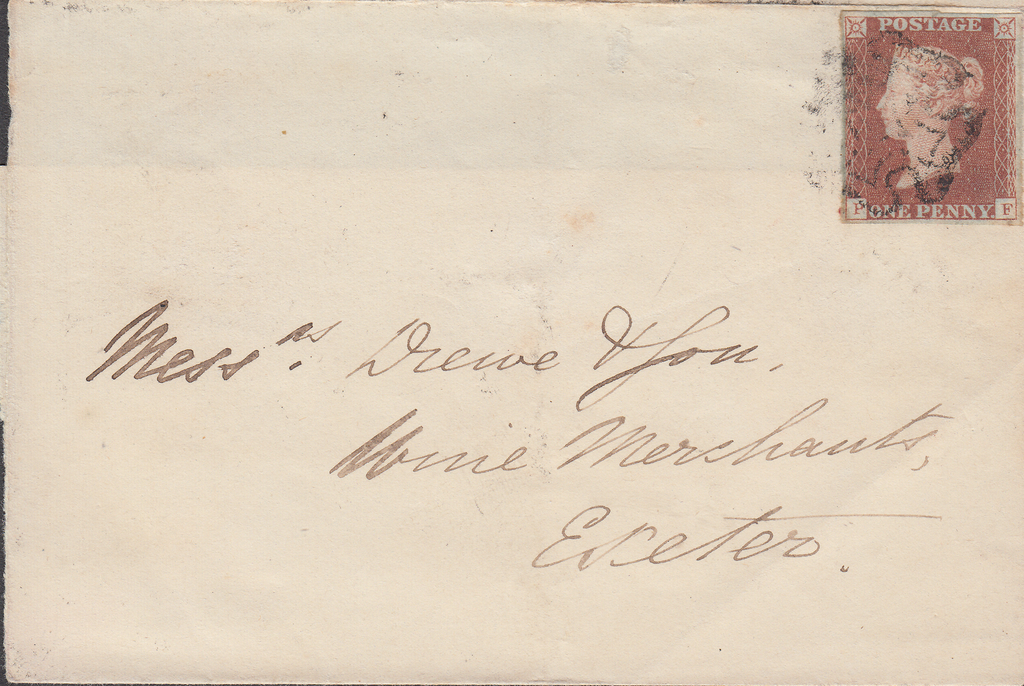 POSTAGE
P ONE PENNY F
Mess.rs Drewe & Son,
Wine Merchants,
Exeter.